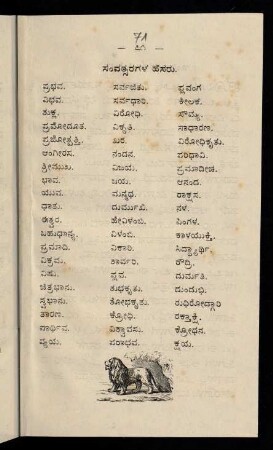 71
— ೭೧ —
ಸಂವತ್ಸರಗಳ ಹೆಸರು.
ಪ್ರಭವ. ಸರ್ವಜಿತು. ಪ್ಲವಂಗ
ವಿಭವ. ಸರ್ವಧಾರಿ. ಕೀಲಕ.
ಶುಕ್ಲ. ವಿರೋಧಿ. ಸೌಮ್ಯ.
ಪ್ರಮೋದೂತ. ವಿಕೃತಿ. ಸಾಧಾರಣ.
ಪ್ರಜೋತ್ಪತ್ತಿ. ಖರ. ವಿರೋಧಿಕೃತು.
ಆಂಗೀರಸ. ನಂದನ. ಪರಿಧಾವಿ.
ಶ್ರೀಮುಖ. ವಿಜಯ. ಪ್ರಮಾದೀಚ.
ಭಾವ. ಜಯ. ಆನಂದ.
ಯುವ. ಮನ್ಮಥ. ರಾಕ್ಷಸ.
ಧಾತು. ದುರ್ಮುಖಿ. ನಳ.
ಈಶ್ವರ. ಹೇವಿಳಂಬಿ. ಪಿಂಗಳ.
ಬಹುಧಾನ್ಯ. ವಿಳಂಬಿ. ಕಾಳಯುಕ್ತಿ.
ಪ್ರಮಾದಿ. ವಿಕಾರಿ. ಸಿದ್ಧಾರ್ಥಿ.
ವಿಕ್ರಮ. ಶಾರ್ವರಿ. ರೌದ್ರಿ.
ವಿಷು. ಪ್ಲವ. ದುರ್ಮತಿ.
ಚಿತ್ರಭಾನು. ಶುಭಕೃತು. ದುಂದುಭಿ.
ಸ್ವಭಾನು. ಶೋಭಕೃತು. ರುಧಿರೋದ್ಗಾರಿ
ತಾರಣ. ಕ್ರೋಧಿ. ರಕ್ತಾಕ್ಷಿ.
ಪಾರ್ಥಿವ. ವಿಶ್ವಾವಸು. ಕ್ರೋಧನ.
ವ್ಯಯ. ಪರಾಭವ. ಕ್ಷಯ.